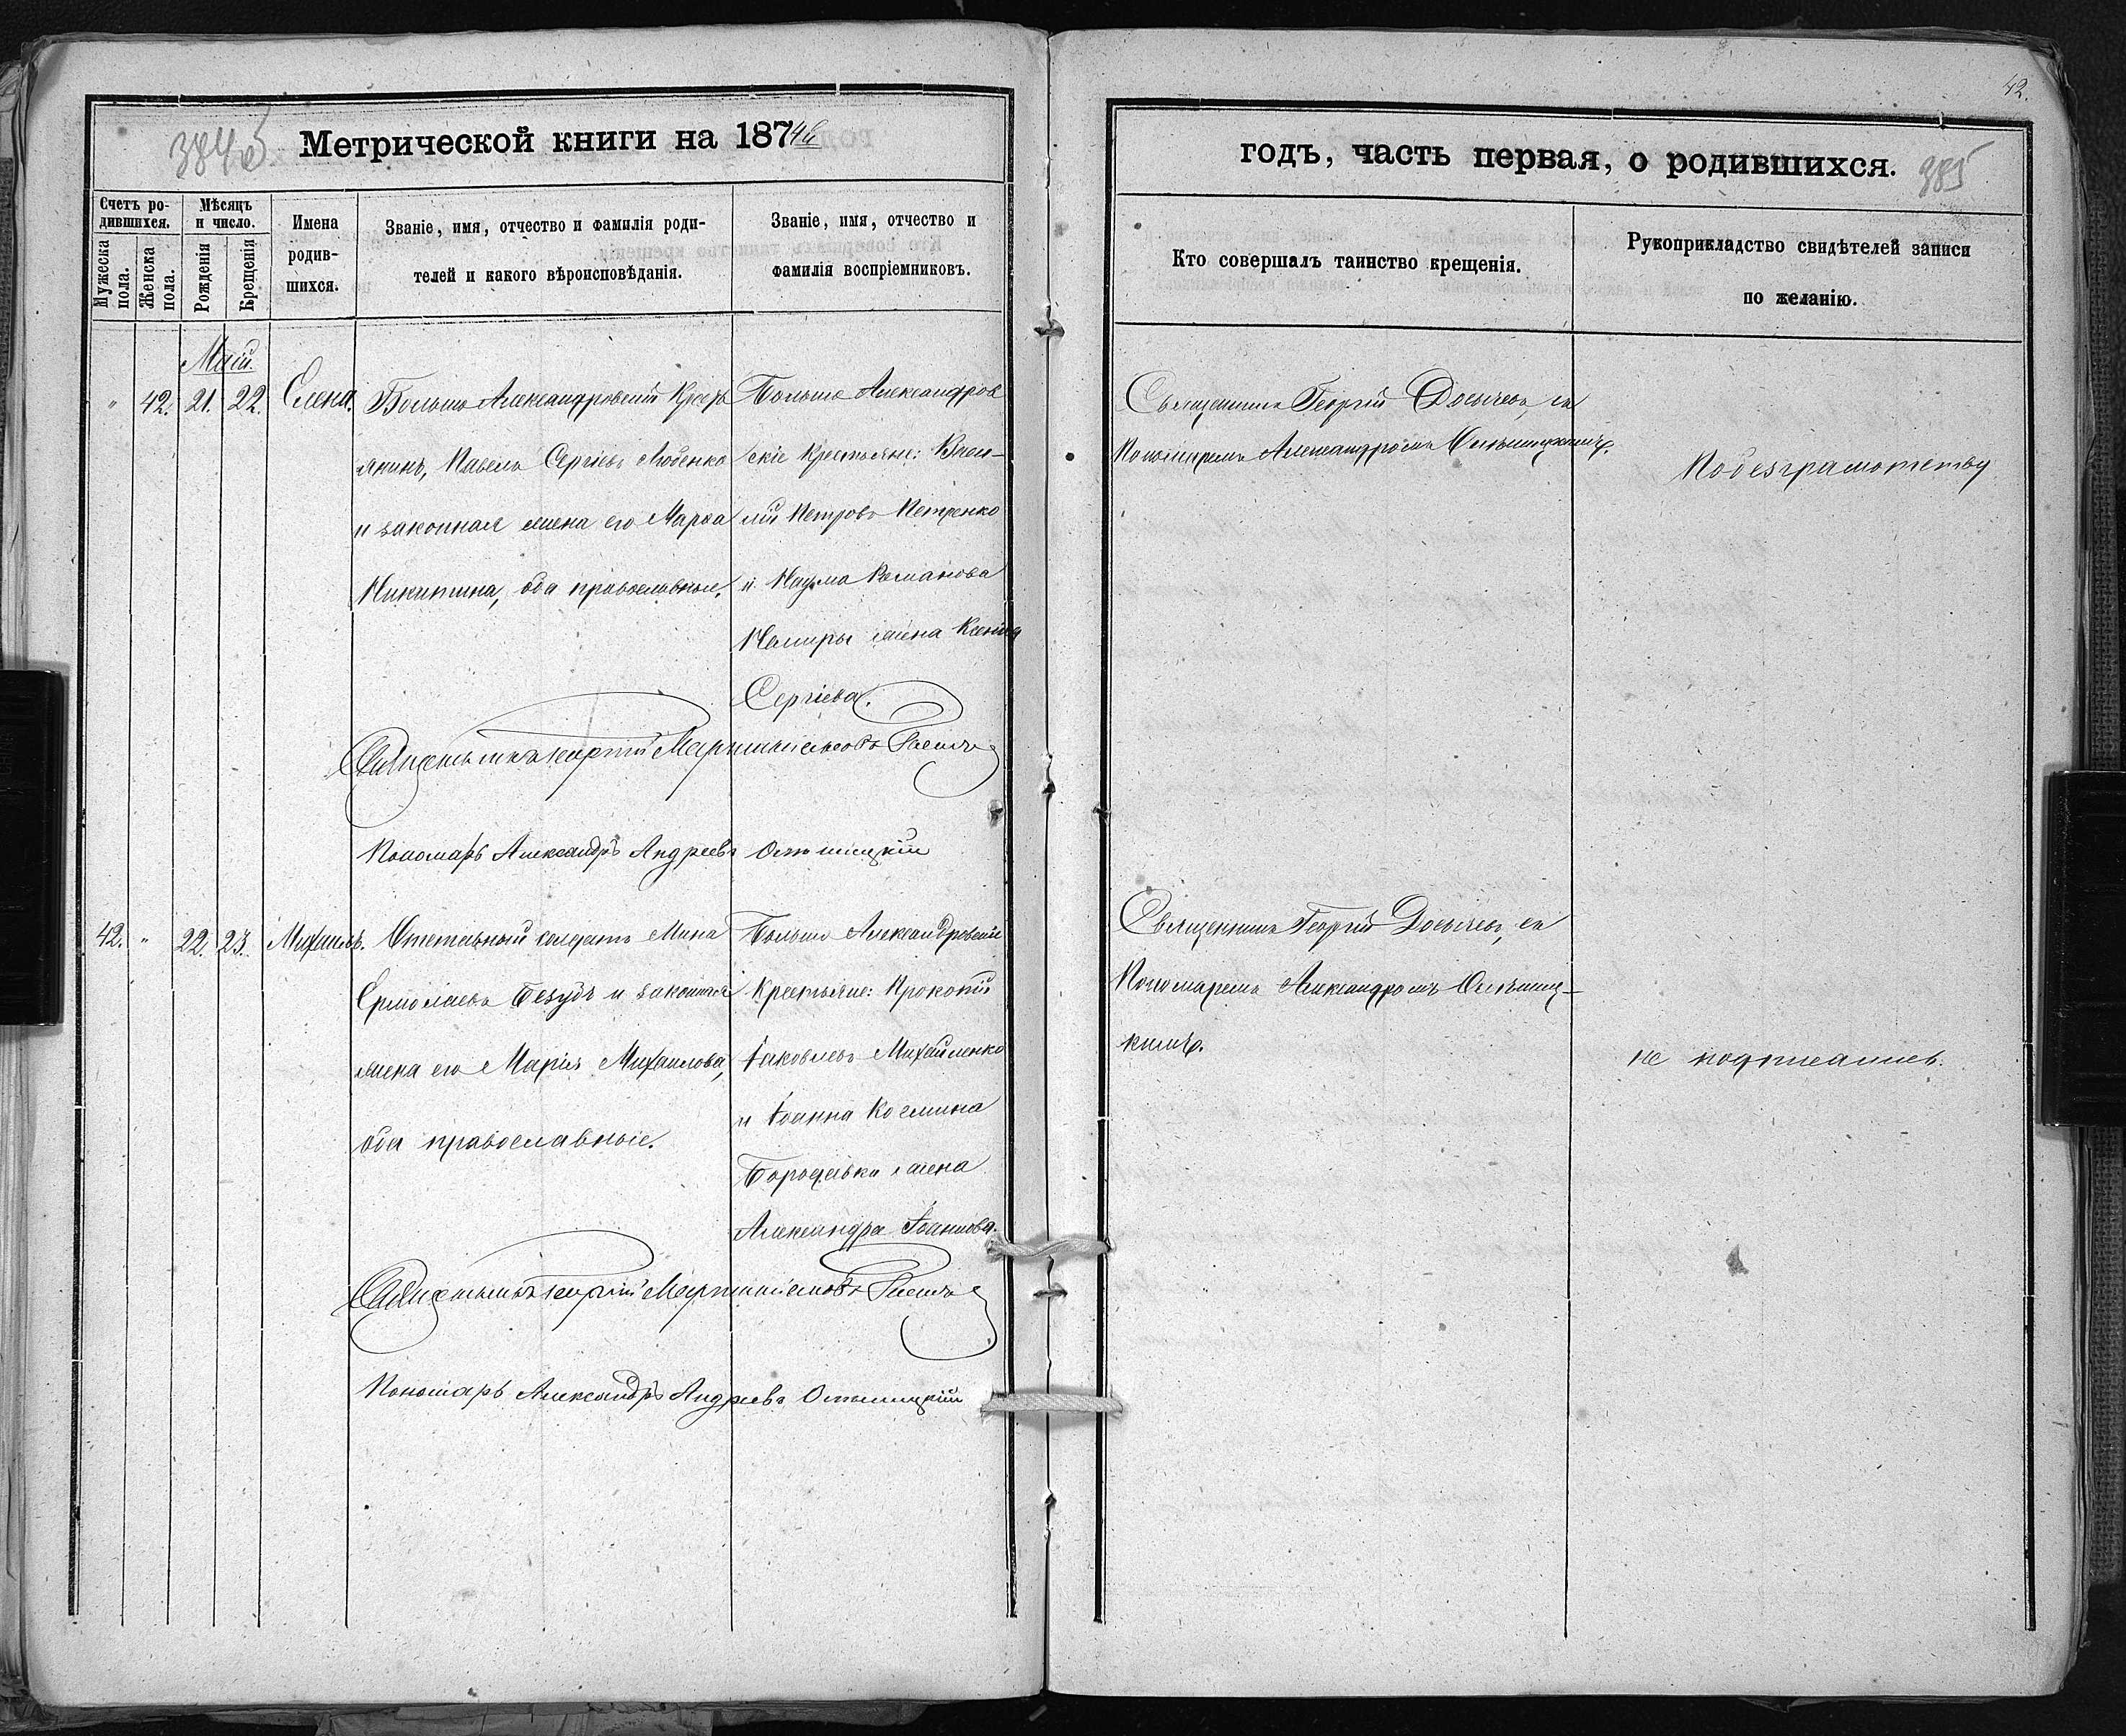 42.
384об
Метрической книги на 1874й
годъ, часть первая, о родившихся.
385
Счетъ ро-
дившихся.
Мужеска
пола.
Женска
пола.
Мѣсяцъ
и число.
Рожденія
Крещенія
Имена
родив-
шихся.
Званіе, имя, отчество и фамилія роди-
телей и какого вѣроисповѣданія.
Званіе, имя, отчество и
фамилія воспріемниковъ.
Кто совершалъ таинство крещенія.
Рукоприкладство свидѣтелей записи
по желанію.
Маій.
" 42. 21. 22. Елена.
Больше Александровскій Кресть
янинъ, Павелъ Сергіевъ Любенко
и законная жена его Марѳа
Никитина, оба православные.
Больше Александров
скіе Крестьяне: Васи-
лій Петровъ Петренко
и Наума Романова
Чемиры жена Ксенія
Сергіева.
Священникъ Георгій
Пономаремъ Александромъ
По безграмотству
Священникъ Георгій
Пономарь Александръ Андреевъ
42. " 22. 23. Михаилъ.
Отставный солдатъ Мина
Ермолаевъ Безудъ и законная
жена его Марія Михаилова,
оба православные.
Больше Александровскіе
Крестьяне: Прокопій
Іаковлевъ Михайленко
и Іоанна Космина
жена
Александра Іоаннова.
Священникъ Георгій
Пономаремъ Александромъ
кимъ.
не подписались.
Священникъ Георгій
Пономарь Александръ Андреевъ